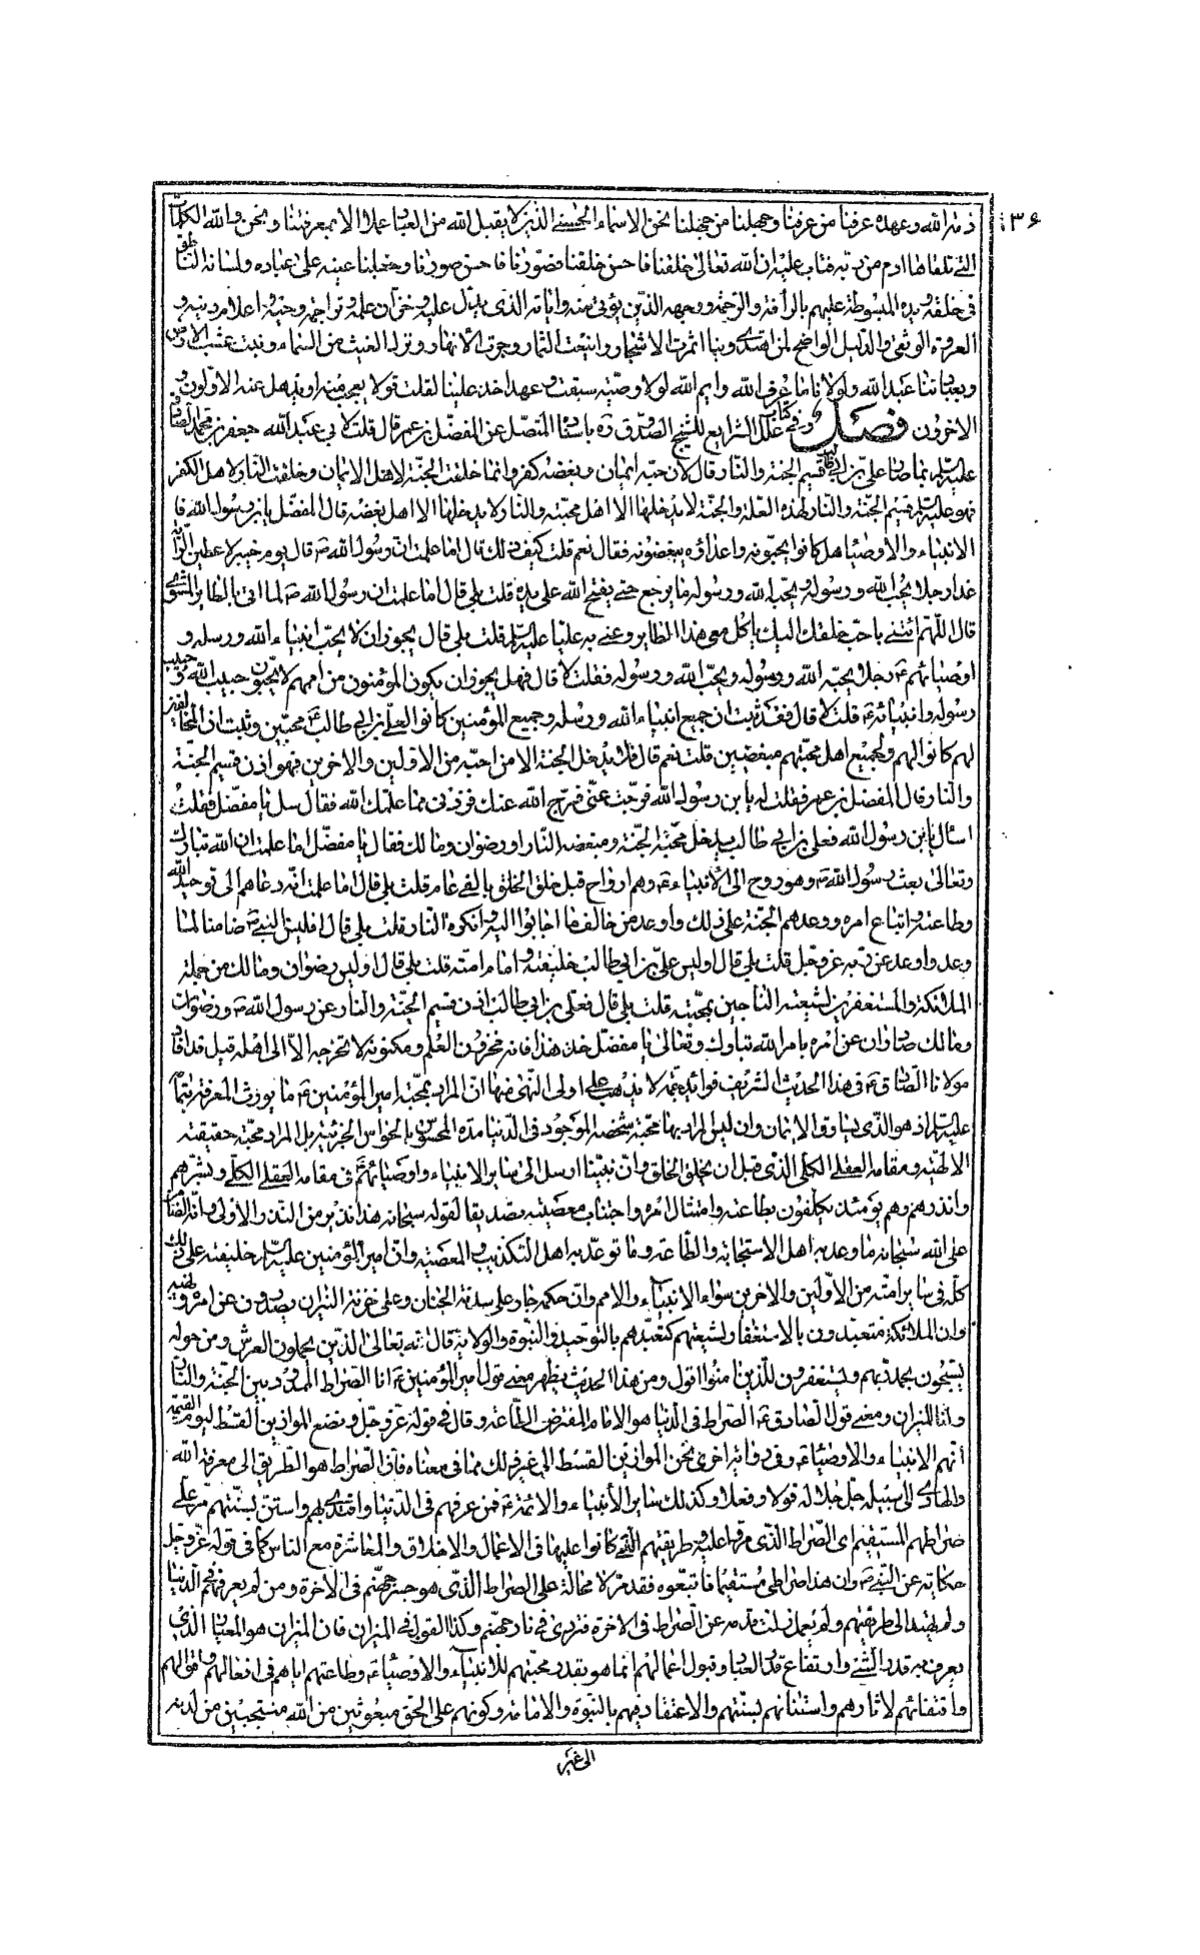 ١٣۶
ذمة الله وعهده عرفنا من عرفنا وجهلنا من جهلنا نحن الاسماء الحسنى الذين لا يقبل الله من العباد عملا الا بمعرفتنا ونحن والله الكلمات
التي تلقاها ادم من ربه فتاب عليه ان الله تعالى خلقنا فاحسن خلقنا وصورنا فاحسن صورنا وجعلنا عينه على عباده ولسانه الناطق
فى خلقه ويده المبسوطة عليهم بالرأفة والرحمة ووجهه الذى يؤتى منه وبابه الذى يدل عليه وخزان علمه وتراجمة وحيه واعلام دينه و
العروة الوثقى والدليل الواضح لمن اهتدى وبنا اثمرت الاشجار واينعت الثمار وجرت الانهار ونزل الغيث من السماء ونبت عشب الارض
وبعبادتنا عبد الله ولولانا ما عرف الله وايم الله لولا وصية سبقت وعهد اخذ علينا لقلت قولا يعجب منه او يذهل عنه الاولون و
الاخرون فصل وفى كتاب علل الشرايع للشيخ الصدوق ره باسناده المتصل عن المفضل بن عمر قال قلت لابى عبد الله جعفر بن محمد الصادق
عليه السلم بما صار على بن ابى طالب قسيم الجنة والنار قال لان حبه ايمان وبغضه كفر وانما خلقت الجنة لاهل الايمان وخلقت النار لاهل الكفر
فهو عليه السلم قسيم الجنة والنار لهذه العلة والجنة لا يدخلها الا اهل محبته والنار لا يدخلها الا اهل بغضه قال المفضل يابن رسول الله فا
الانبياء والاوصياء هل كانوا يحبونه واعداؤه يبغضونه فقال نعم قلت كيف ذلك قال اما علمت ان رسول الله ص قال يوم خيبر لاعطين الراية
غدا رجلا يحب الله ورسوله ويحبه الله ورسوله ما يرجع حتى يفتح الله على يده قلت بلى قال اما علمت ان رسول الله ص لما اتى بالطاير المشوى
قال اللهم ائتنى باحب خلقك اليك ياكل معى هذا الطاير وعنى به عليا عليه السلم قلت بلى قال يجوز ان لا يحب انبياء الله ورسله و
اوصيائهم ع رجلا يحبه الله ورسوله ويحب الله ورسوله فقلت لا قال فهل يجوز ان يكون المؤمنون من اممهم لا يحبون حبيب الله وحبيب
رسوله وانبيائه ع قلت لا قال فقد ثبت ان جميع انبياء الله ورسله وجميع المؤمنين كانوا لعلى بن ابى طالب ع محبين وثبت ان المخالفين
لهم كانوا لهم ولجميع اهل محبتهم مبغضين قلت نعم قال فلا يدخل الجنة الا من احبه من الاولين والاخرين فهو اذن قسيم الجنة
والنار قال المفضل بن عمر فقلت له يابن رسول الله فرجت عنى فرج الله عنك فزدنى مما علمك الله فقال سل يا مفضل فقلت
اسأل يابن رسول الله فعلى بن ابى طالب يدخل محبه الجنة ومبغضه النار او رضوان ومالك فقال يا مفضل اما علمت ان الله تبارك
وتعالى بعث رسول الله ص وهو روح الى الانبياء ع وهم ارواح قبل خلق الخلق بالفى عام قلت بلى قال اما علمت انه دعاهم الى توحيد الله
وطاعته واتباع امره ووعدهم الجنة على ذلك واوعد من خالف ما اجابوا اليه وانكره النار قلت بلى قال افليس النبى ص ضامنا لما
وعد واوعد عن ربه عز وجل قلت بلى قال اوليس على بن ابى طالب خليفته وامام امته قلت بلى قال اوليس رضوان ومالك من جملة
الملائكة والمستغفرين لشيعته الناجين بمحبته قلت بلى قال فعلى بن ابى طالب اذن قسيم الجنة والنار عن رسول الله ص ورضوان
ومالك صادران عن امره بامر الله تبارك وتعالى يا مفضل خذ هذا فانه من مخزون العلم ومكنونه لا تخرجه الا الى اهله قيل قد افاد
مولانا الصادق ع فى هذا الحديث الشريف فوائد جمة لا يذهب على اولى النهى منها ان المراد بمحبة امير المؤمنين ع ما يورث المعرفة بمقامه
عليه السلم اذ هو الذى يساوق الايمان وان ليس المراد بها محبة شخصه الموجود فى الدنيا مدة المحسوس بالحواس الجزئية بل المراد محبة حقيقته
الالهية ومقامه العقلى الكلى الذى قبل ان يخلق الخلق وان نبينا ارسل الى ساير الانبياء واوصيائهم ع فى مقامه العقلى الكلى وبشرهم
وانذرهم وهم يومئذ مكلفون بطاعته وامتثال امره واجتناب معصيته تصديقا لقوله سبحانه هذا نذير من النذر الاولى وانه الضامن
على الله سبحانه ما وعد به اهل الاستجابة والطاعة وما توعد به اهل التكذيب والمعصية وان امير المؤمنين عليه السلم خليفته على ذلك
كله فى ساير امته من الاولين والاخرين سواء الانبياء والامم وان حكمه جار على سدنة الجنان وعلى خزنة النيران يصدرون عن امره ونهيه
وان الملائكة متعبدون بالاستغفار لشيعتهم كتعبدهم بالتوحيد والنبوة والولاية قال الله تعالى الذين يحملون العرش ومن حوله
يسبحون بحمد ربهم ويستغفرون للذين امنوا اقول ومن هذا الحديث يظهر معنى قول امير المؤمنين ع انا الصراط الممدود بين الجنة والنار
وانا الميزان ومعنى قول الصادق ع الصراط فى الدنيا هو الامام المفترض الطاعة وقال فى قوله عز وجل ونضع الموازين القسط ليوم القيمة
انهم الانبياء والاوصياء ع وفى رواية اخرى نحن الموازين القسط الى غير ذلك مما فى معناه فان الصراط هو الطريق الى معرفة الله
والهادى الى سبيله جل جلاله قولا وفعلا وكذلك ساير الانبياء والائمة ع فمن عرفهم فى الدنيا واقتدى بهم واستن بسنتهم مر على
صراطهم المستقيم اى الصراط الذى مروا عليه وطريقتهم التى كانوا عليها فى الاعمال والاخلاق والمعاشرة مع الناس كما فى قوله عز وجل
حكاية عن النبى ص وان هذا صراطى مستقيما فاتبعوه فقد مر لا محالة على الصراط الذى هو جسر جهنم فى الاخرة ومن لم يعرفهم فى الدنيا
ولم يهتد الى طريقتهم ولم يعمل زلت قدمه عن الصراط فى الاخرة فتردى فى نار جهنم وكذا القول فى الميزان فان الميزان هو المعيار الذى
يعرف به قدر الشئ وارتفاع قدر العباد وقبول اعمالهم انما هو بقدر محبتهم للانبياء والاوصياء ع وطاعتهم اياهم فى افعالهم واقوالهم
واقتفائهم لاثارهم واستنانهم بسنتهم والاعتقاد فيهم بالنبوة والامامة وكونهم على الحق مبعوثين من الله منتجبين من لدنه
الى غير